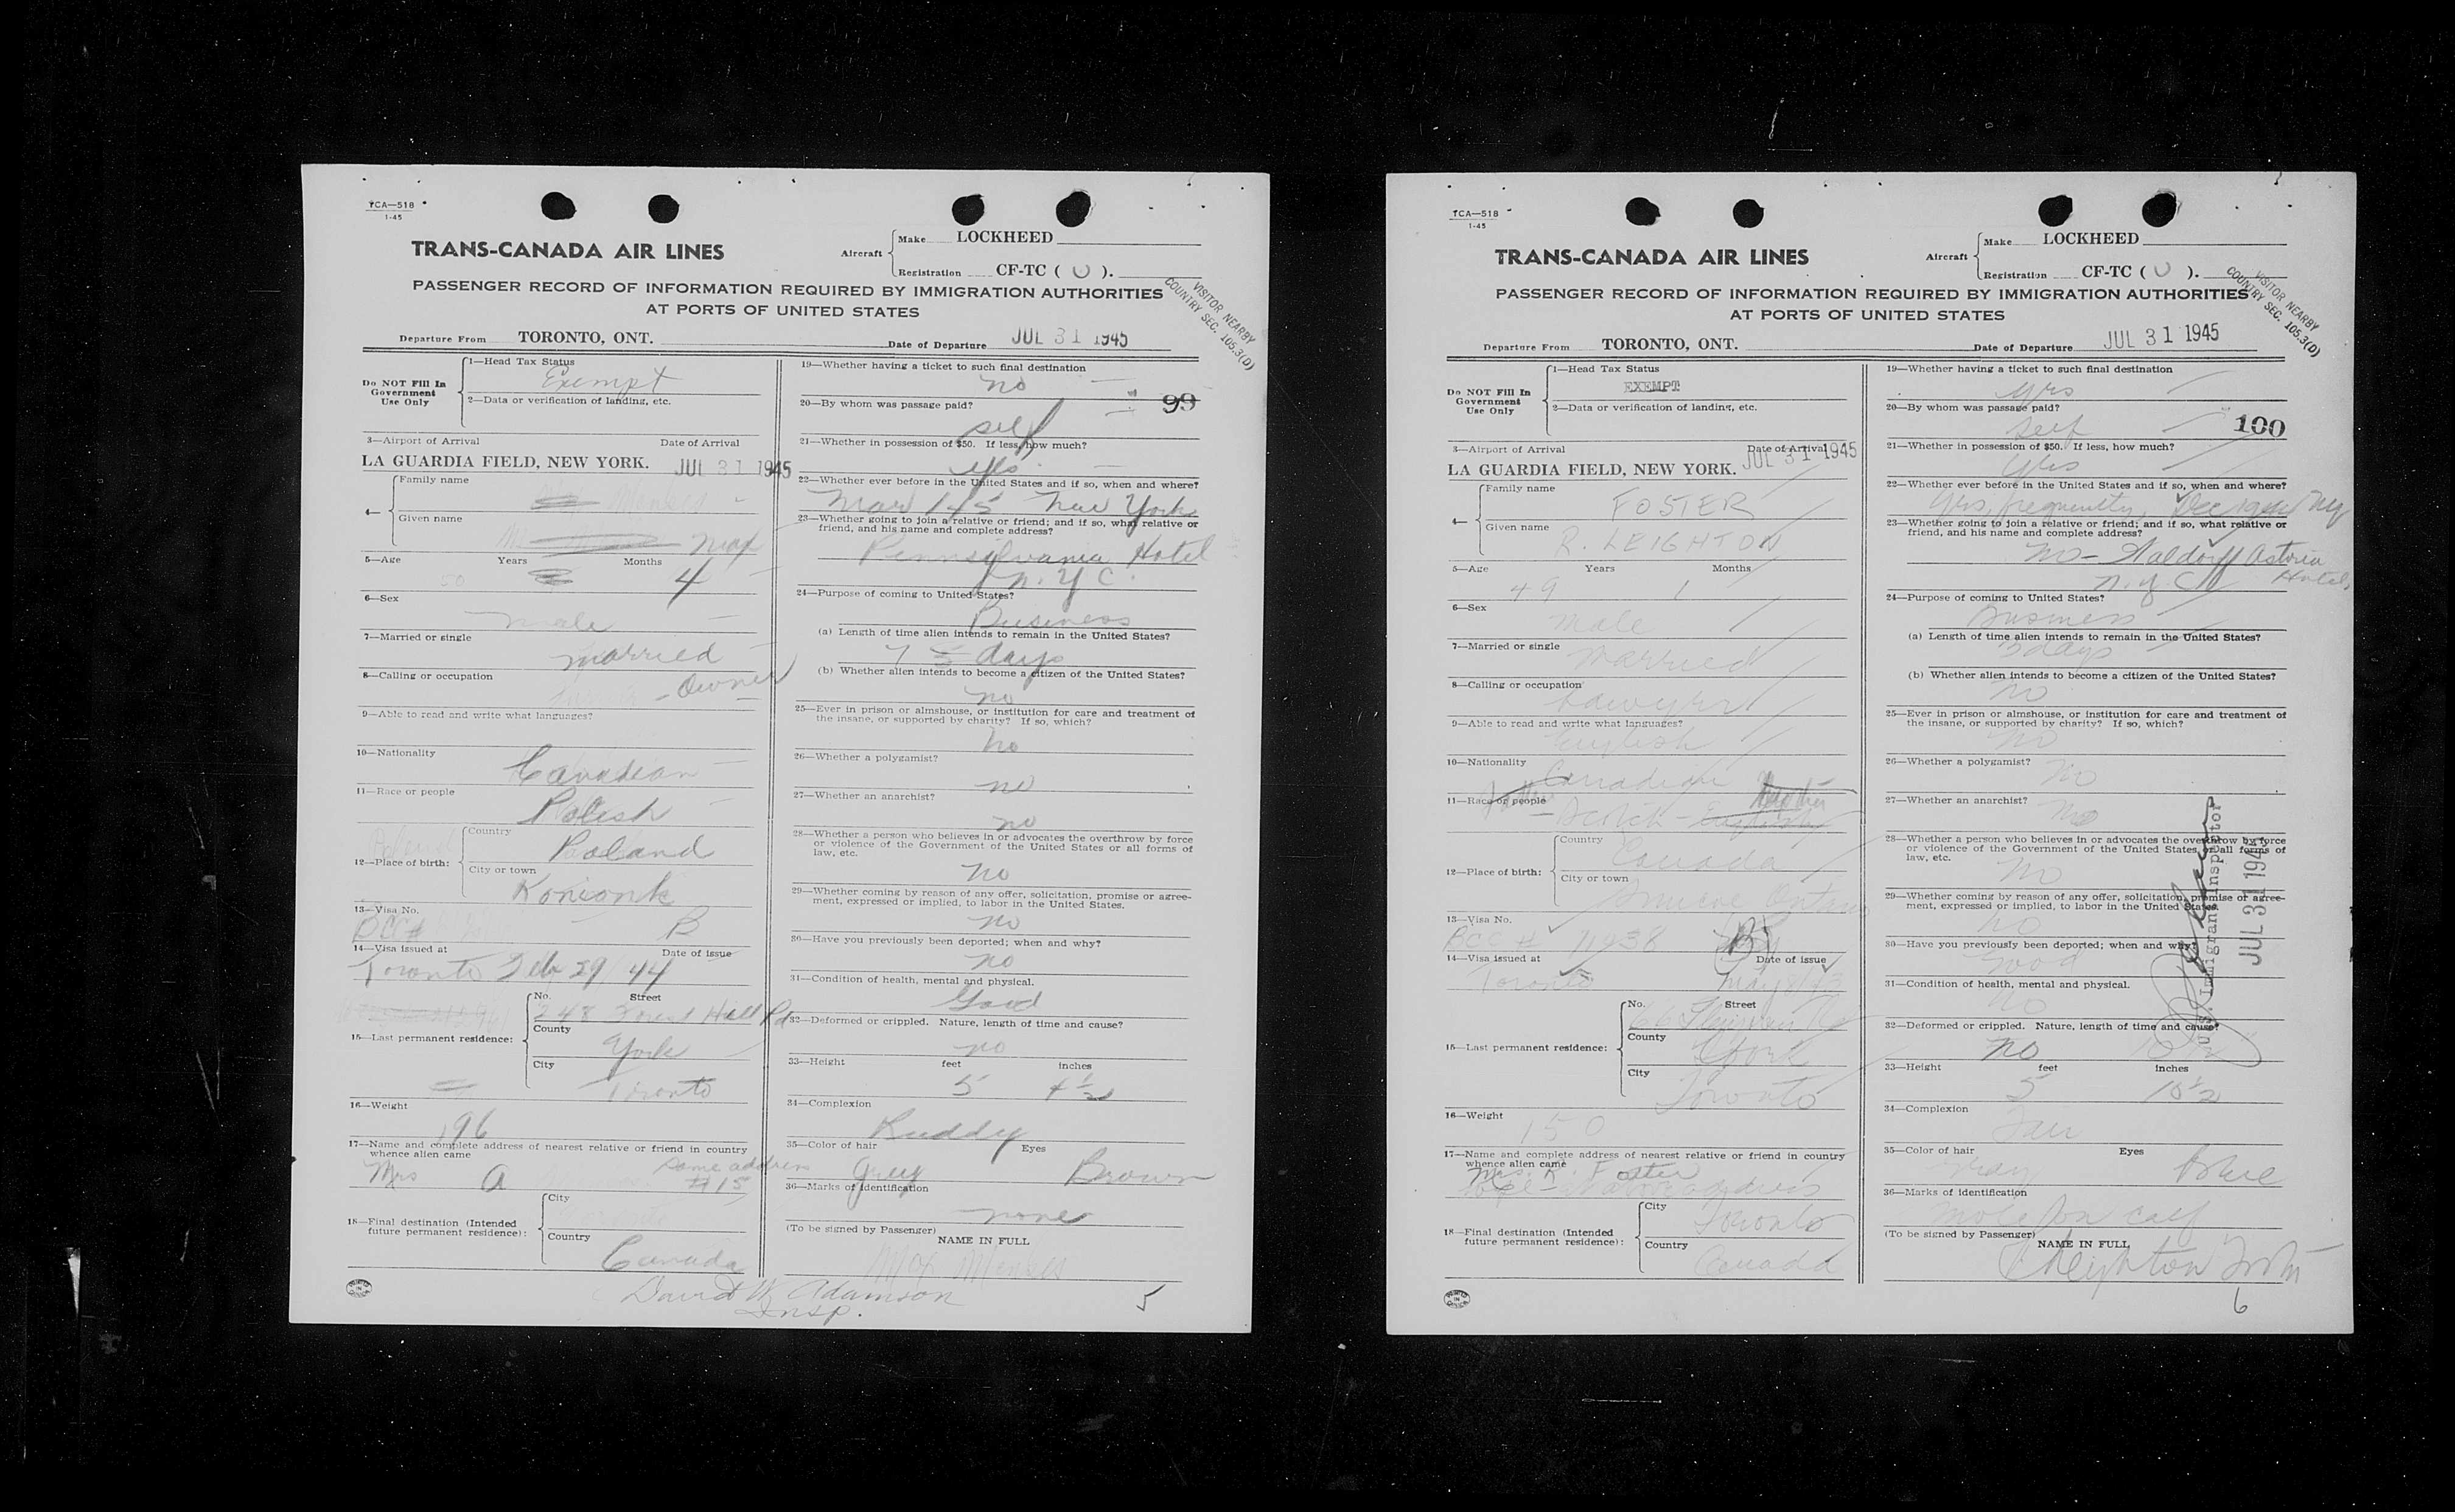 TCA—518
1-45
TRANS-CANADA AIR LINES
Aircraft
Make LOCKHEED
Registration CF-TC ( U ).
PASSENGER RECORD OF INFORMATION REQUIRED BY IMMIGRATION AUTHORITIES
AT PORTS OF UNITED STATES
VISITOR NEARBY
COUNTRY SEC. 105.3(D)
Departure From TORONTO, ONT. Date of Departure JUL 31 1945
Do NOT Fill In
Government
Use Only
1—Head Tax Status
Exempt
2—Data or verification of landing, etc.
3—Airport of Arrival Date of Arrival
LA GUARDIA FIELD, NEW YORK. JUL 31 1945
4—
Family name
Menkes
Given name
Max
5—Age Years Months
50 4
6—Sex
male
7—Married or single
married
8—Calling or occupation
Owner
9—Able to read and write what languages?
10—Nationality
Canadian
11—Race or people
Polish
12—Place of birth:
Country
Poland
City or town
Konsonk
13—Visa No.
BCC# B
14—Visa issued at Date of issue
Toronto Feb 29/44
15—Last permanent residence:
No. Street
248 Forest Hill Rd
County
York
City
Toronto
16—Weight
196
17—Name and complete address of nearest relative or friend in country
whence alien came
Mrs A same address
#15
18—Final destination (Intended
future permanent residence):
City
Toronto
Country
Canada
19—Whether having a ticket to such final destination
no
99
20—By whom was passage paid?
self
21—Whether in possession of $50. If less, how much?
yes
22—Whether ever before in the United States and if so, when and where?
Mar 1/45 New York
23—Whether going to join a relative or friend; and if so, what relative or
friend, and his name and complete address?
Pennsylvania Hotel
N.Y.C.
24—Purpose of coming to United States?
Business
(a) Length of time alien intends to remain in the United States?
7 days
(b) Whether alien intends to become a citizen of the United States?
no
25—Ever in prison or almshouse, or institution for care and treatment of
the insane, or supported by charity? If so, which?
no
26—Whether a polygamist?
no
27—Whether an anarchist?
no
28—Whether a person who believes in or advocates the overthrow by force
or violence of the Government of the United States or all forms of
law, etc.
no
29—Whether coming by reason of any offer, solicitation, promise or agree-
ment, expressed or implied, to labor in the United States.
no
30—Have you previously been deported; when and why?
no
31—Condition of health, mental and physical.
Good
32—Deformed or crippled. Nature, length of time and cause?
no
33—Height feet inches
5 4½
34—Complexion
Ruddy
35—Color of hair Eyes
Grey Brown
36—Marks of identification
none
(To be signed by Passenger)
NAME IN FULL
Max Menkes
David W. Adamson
Insp.
5
TCA—518
1-45
TRANS-CANADA AIR LINES
Aircraft
Make LOCKHEED
Registration CF-TC ( U ).
PASSENGER RECORD OF INFORMATION REQUIRED BY IMMIGRATION AUTHORITIES
AT PORTS OF UNITED STATES
VISITOR NEARBY
COUNTRY SEC. 105.3(D)
Departure From TORONTO, ONT. Date of Departure JUL 31 1945
Do NOT Fill In
Government
Use Only
1—Head Tax Status
EXEMPT
2—Data or verification of landing, etc.
3—Airport of Arrival Date of Arrival
LA GUARDIA FIELD, NEW YORK. JUL 31 1945
4—
Family name
FOSTER
Given name
R. LEIGHTON
5—Age Years Months
49 1
6—Sex
Male
7—Married or single
Married
8—Calling or occupation
Lawyer
9—Able to read and write what languages?
English
10—Nationality
Canadian
11—Race or people
Scotch - English
12—Place of birth:
Country
Canada
City or town
Simcoe Ontario
13—Visa No.
BCC # 11438 B
14—Visa issued at Date of issue
Toronto May 8/43
15—Last permanent residence:
No. Street
66
County
York
City
Toronto
16—Weight
150
17—Name and complete address of nearest relative or friend in country
whence alien came
Mrs. R. Foster
wife - same address
18—Final destination (Intended
future permanent residence):
City
Toronto
Country
Canada
19—Whether having a ticket to such final destination
yes
20—By whom was passage paid?
self
100
21—Whether in possession of $50. If less, how much?
yes
22—Whether ever before in the United States and if so, when and where?
yes, frequently, Dec 1944 NY
23—Whether going to join a relative or friend; and if so, what relative or
friend, and his name and complete address?
no - Waldorf Astoria
N.Y.C. Hotel
24—Purpose of coming to United States?
Business
(a) Length of time alien intends to remain in the United States?
3 days
(b) Whether alien intends to become a citizen of the United States?
no
25—Ever in prison or almshouse, or institution for care and treatment of
the insane, or supported by charity? If so, which?
no
26—Whether a polygamist?
no
27—Whether an anarchist?
no
28—Whether a person who believes in or advocates the overthrow by force
or violence of the Government of the United States or all forms of
law, etc.
no
29—Whether coming by reason of any offer, solicitation, promise or agree-
ment, expressed or implied, to labor in the United States.
no
30—Have you previously been deported; when and why?
good
31—Condition of health, mental and physical.
no
32—Deformed or crippled. Nature, length of time and cause?
no
U.S. Immigrant Inspector
JUL 31 1945
33—Height feet inches
5 10½
34—Complexion
Fair
35—Color of hair Eyes
Gray Blue
36—Marks of identification
mole on calf
(To be signed by Passenger)
NAME IN FULL
R Leighton Foster
6